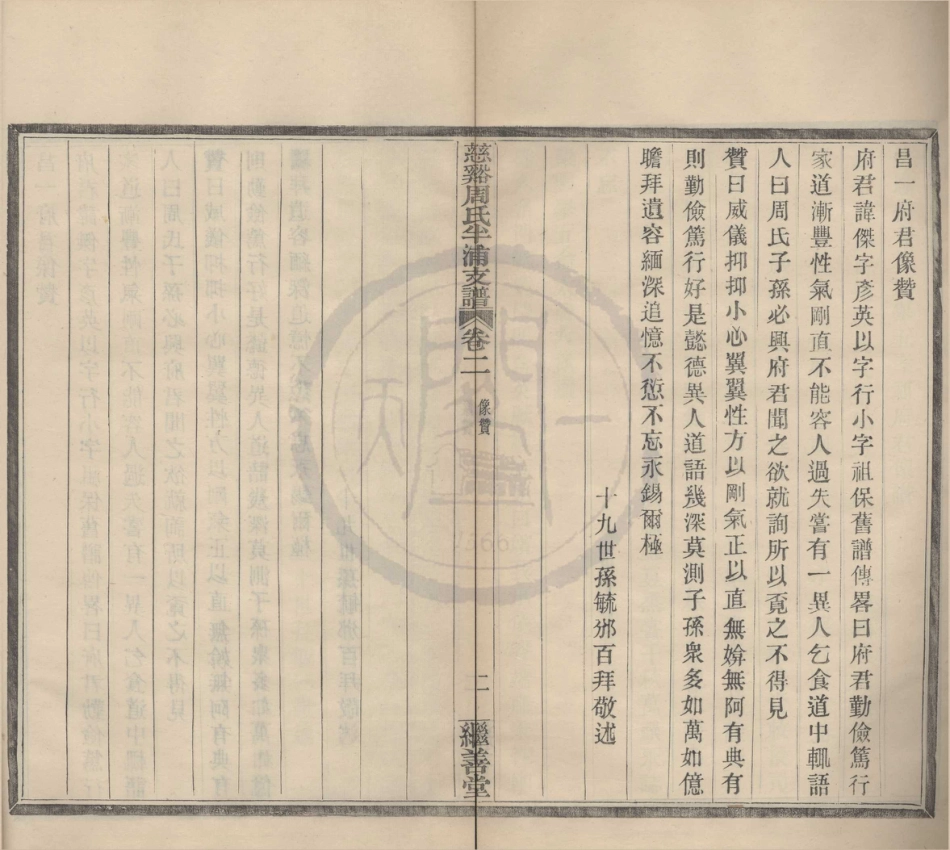 昌一府君像贊
府君諱傑字彥英以字行小字祖保舊譜傳畧曰府君勤儉篤行
家道漸豐性氣剛直不能容人過失嘗有一異人乞食道中輒語
人曰周氏子孫必興府君聞之欲就詢所以覓之不得見
贊曰威儀抑抑小心翼翼性方以剛氣正以直無媕無阿有典有
則勤儉篤行好是懿德異人道語幾深莫測子孫衆多如萬如億
瞻拜遺容緬深追憶不愆不忘永錫爾極
十九世孫毓邠百拜敬述
慈谿周氏半浦支譜
卷二
像贊
二
繼善堂